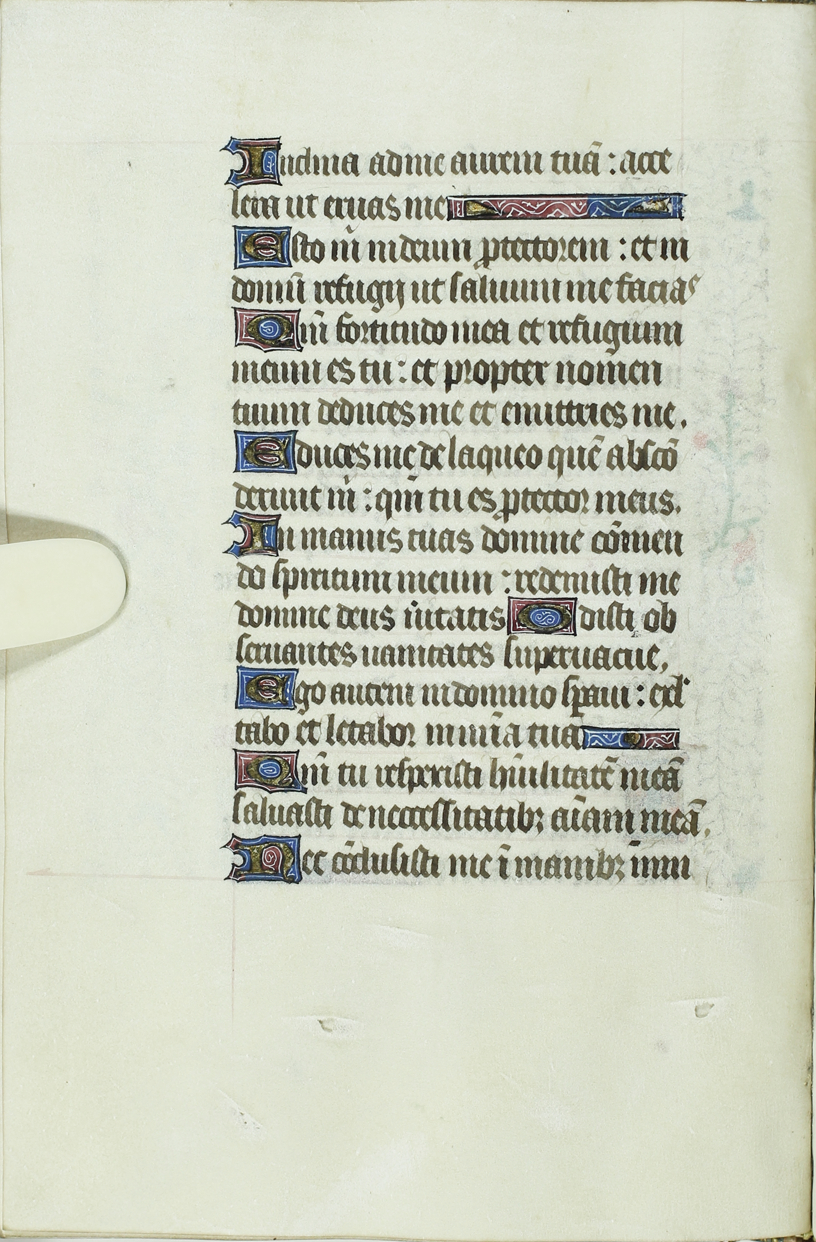 Inclina ad me aurem tuā : acce
lera ut eruas me
Esto m̄ in deum ꝓtectorem : et in
domū refugij ut saluum me facias
Qm̄ fortitudo mea et refugium
meum es tu : et propter nomen
tuum deduces me et enutries me.
Educes me de laqueo quē abscō
derunt m̄ : qm̄ tu es ꝓtector meus.
In manus tuas domine cōmen
do spiritum meum : redemisti me
domine deus ūitatis Odisti ob
seruantes uanitates superuacue,
Ego autem in domino sꝑaui : exl
tabo et letabor in mīa tua
Qm̄ tu respexisti hūilitatē meā
saluasti de necessitatibꝫ aīam meā.
Nec cōclusisti me ī manibꝫ inimi